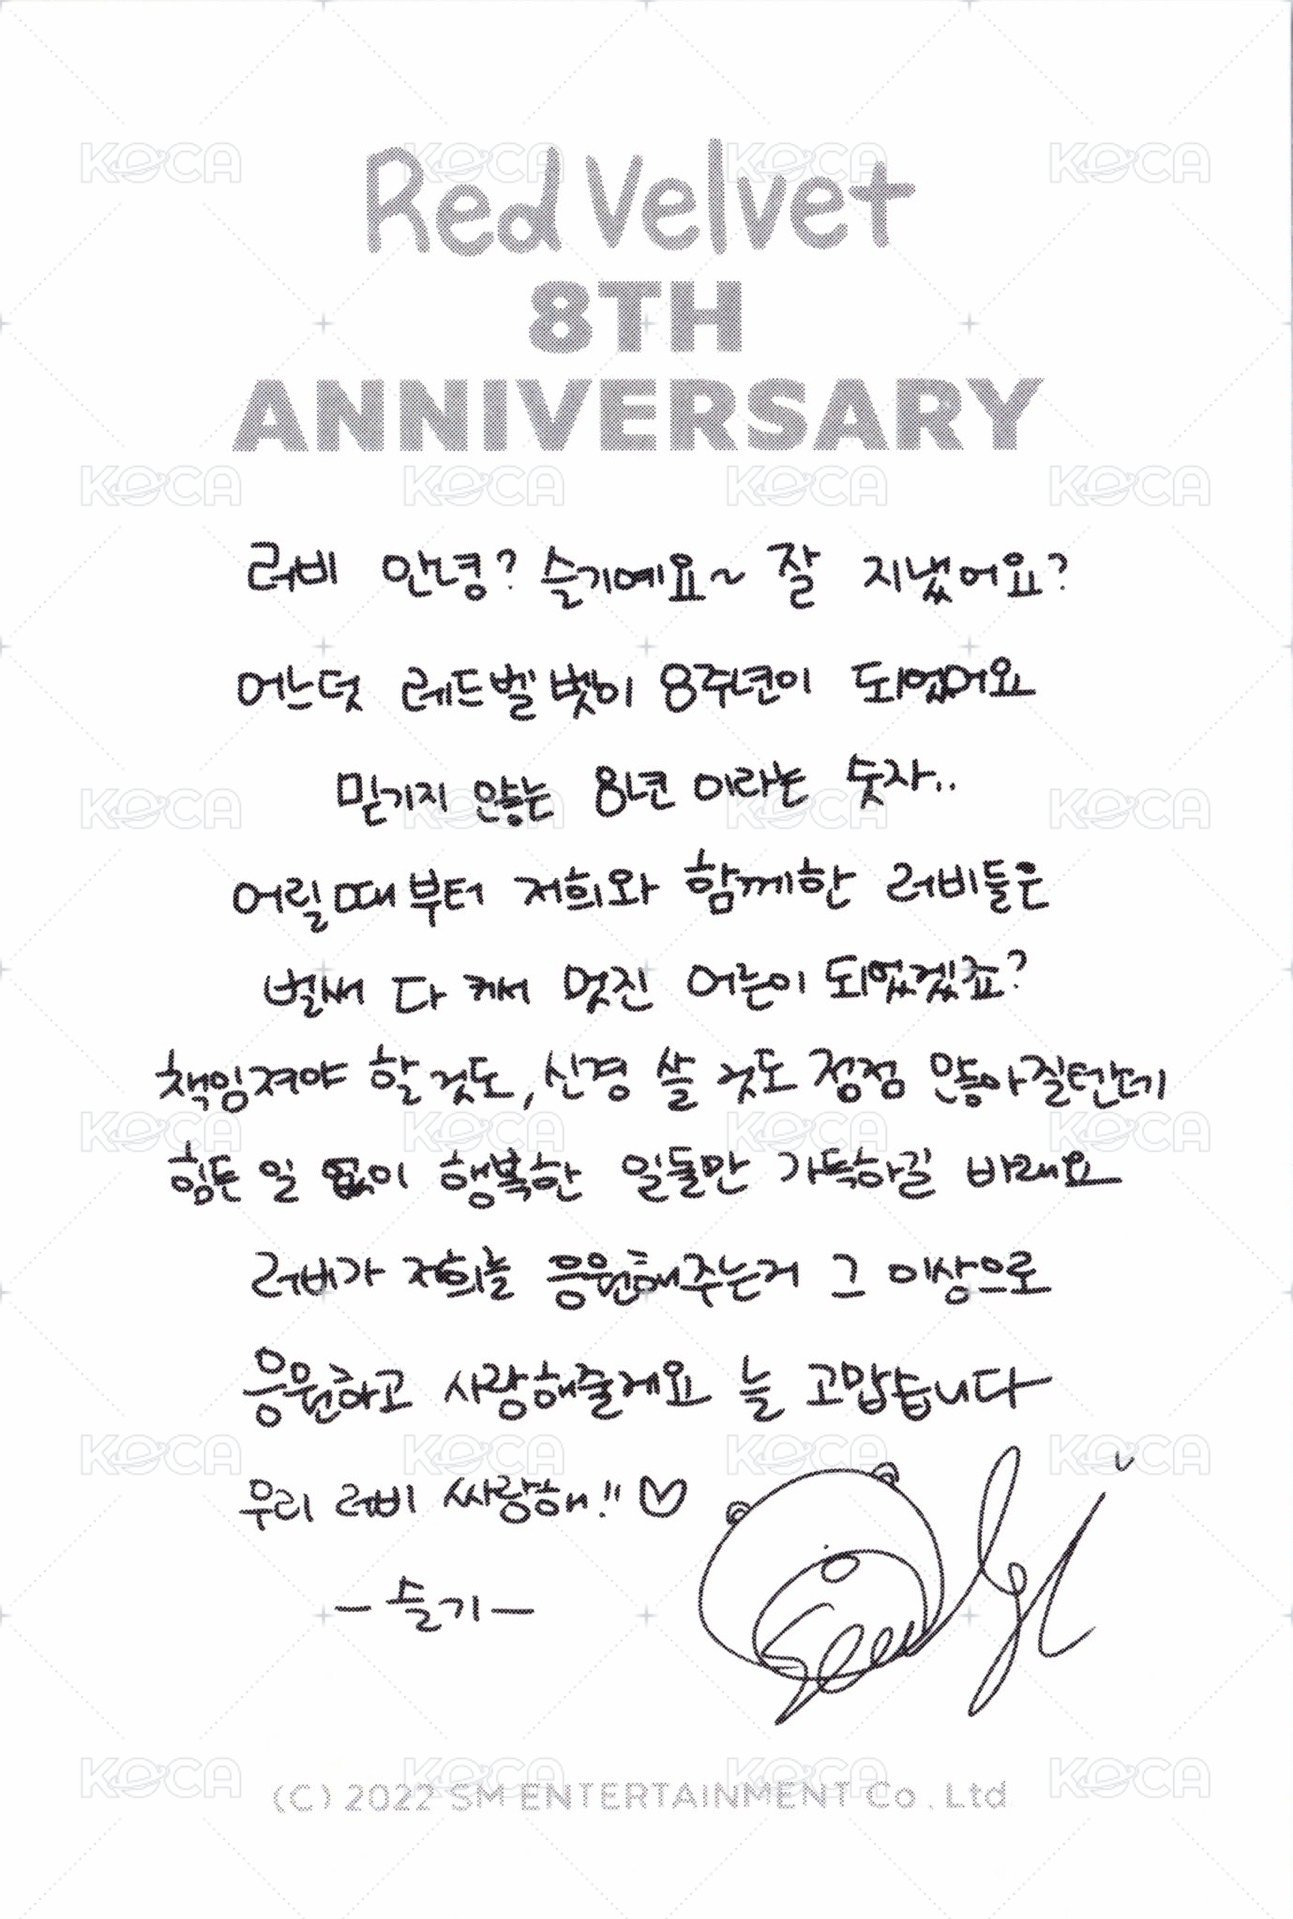 Red Velvet
8TH
ANNIVERSARY
러비 안녕? 슬기예요~ 잘 지냈어요?
어느덧 레드벨벳이 8주년이 되었어요
믿기지 않는 8년 이라는 숫자..
어릴때부터 저희와 함께한 러비들은
벌써 다 커서 멋진 어른이 되었겠죠?
책임져야 할 것도, 신경 쓸 것도 점점 많아질텐데
힘든 일 없이 행복한 일들만 가득하길 바래요
러비가 저희를 응원해주는거 그 이상으로
응원하고 사랑해줄게요 늘 고맙습니다
우리 러비 싸랑해!! ♡
- 슬기 -
Seulgi
(C) 2022 SM ENTERTAINMENT Co., Ltd
KOCA